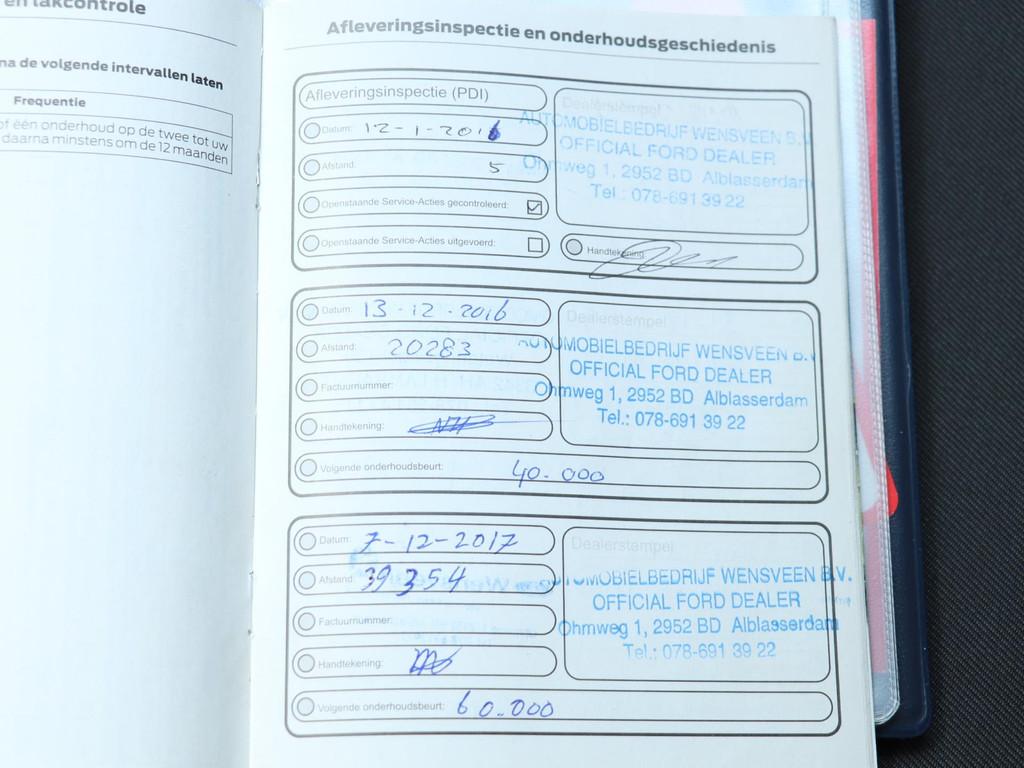 en lakcontrole
na de volgende intervallen laten
Frequentie
of één onderhoud op de twee tot uw
daarna minstens om de 12 maanden
Afleveringsinspectie en onderhoudsgeschiedenis
Afleveringsinspectie (PDI)
Datum: 12-1-2016
Afstand: 5
Openstaande Service-Acties gecontroleerd:
Openstaande Service-Acties uitgevoerd:
Dealerstempel
AUTOMOBIELBEDRIJF WENSVEEN B.V.
OFFICIAL FORD DEALER
Ohmweg 1, 2952 BD Alblasserdam
Tel.: 078-691 39 22
Handtekening:
Datum: 13-12-2016
Afstand: 20283
Factuurnummer:
Handtekening:
Dealerstempel
AUTOMOBIELBEDRIJF WENSVEEN B.V.
OFFICIAL FORD DEALER
Ohmweg 1, 2952 BD Alblasserdam
Tel.: 078-691 39 22
Volgende onderhoudsbeurt: 40.000
Datum: 7-12-2017
Afstand: 39354
Factuurnummer:
Handtekening:
Dealerstempel
AUTOMOBIELBEDRIJF WENSVEEN B.V.
OFFICIAL FORD DEALER
Ohmweg 1, 2952 BD Alblasserdam
Tel.: 078-691 39 22
Volgende onderhoudsbeurt: 60.000